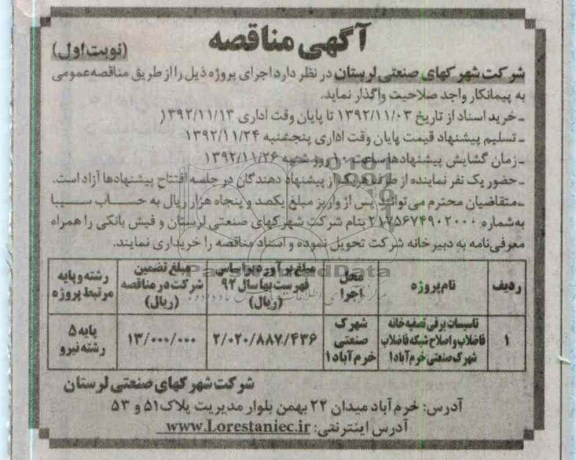 آگهی مناقصه
(نوبت اول)
شرکت شهرکهای صنعتی لرستان در نظر دارد اجرای پروژه ذیل را از طریق مناقصه عمومی
به پیمانکار واجد صلاحیت واگذار نماید.
ـ خرید اسناد از تاریخ ۱۳۹۲/۱۱/۰۳ تا پایان وقت اداری ۱۳۹۲/۱۱/۱۳
ـ تسلیم پیشنهاد قیمت پایان وقت اداری پنجشنبه ۱۳۹۲/۱۱/۲۴
ـ زمان گشایش پیشنهادها ساعت ۱۰ روز شنبه ۱۳۹۲/۱۱/۲۶
ـ حضور یک نفر نماینده از طرف هر یک از پیشنهاد دهندگان در جلسه افتتاح پیشنهادها آزاد است.
ـ متقاضیان محترم می‌توانند پس از واریز مبلغ یکصد و پنجاه هزار ریال به حساب سیبا
به‌شماره ۲۱۷۵۶۷۴۹۰۲۰۰۰ بنام شرکت شهرکهای صنعتی لرستان و فیش بانکی را همراه
معرفی‌نامه به دبیرخانه شرکت تحویل نموده و اسناد مناقصه را خریداری نمایند.
ردیف
نام پروژه
محل
اجرا
مبلغ برآورد براساس
فهرست بها سال ۹۲
(ریال)
مبلغ تضمین
شرکت در مناقصه
(ریال)
رشته و پایه
مرتبط پروژه
۱
تاسیسات برقی تصفیه خانه
فاضلاب و اصلاح شبکه فاضلاب
شهرک صنعتی خرم آباد۱
شهرک
صنعتی
خرم آباد۱
۲/۰۲۰/۸۸۷/۴۳۶
۱۳/۰۰۰/۰۰۰
پایه ۵
رشته نیرو
شرکت شهرکهای صنعتی لرستان
آدرس: خرم آباد میدان ۲۲ بهمن بلوار مدیریت پلاک ۵۱ و ۵۳
آدرس اینترنتی: www.Lorestaniec.ir